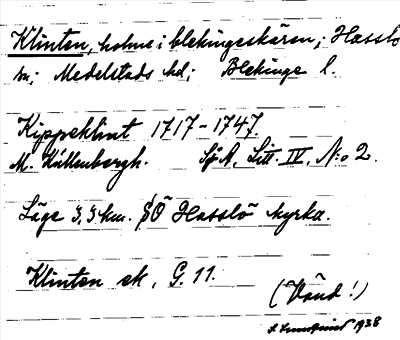 Klinten, holme i blekingeskären; Hasslö
sn; Medelstads hd; Blekinge l.
Kippeklint 1717-1747.
M. Källenbergh. SjA, Litt. IV, N:o 2.
Läge 3,3 km. SÖ Hasslö kyrka.
Klinten ek, G. 11.
(Vänd!)
1938